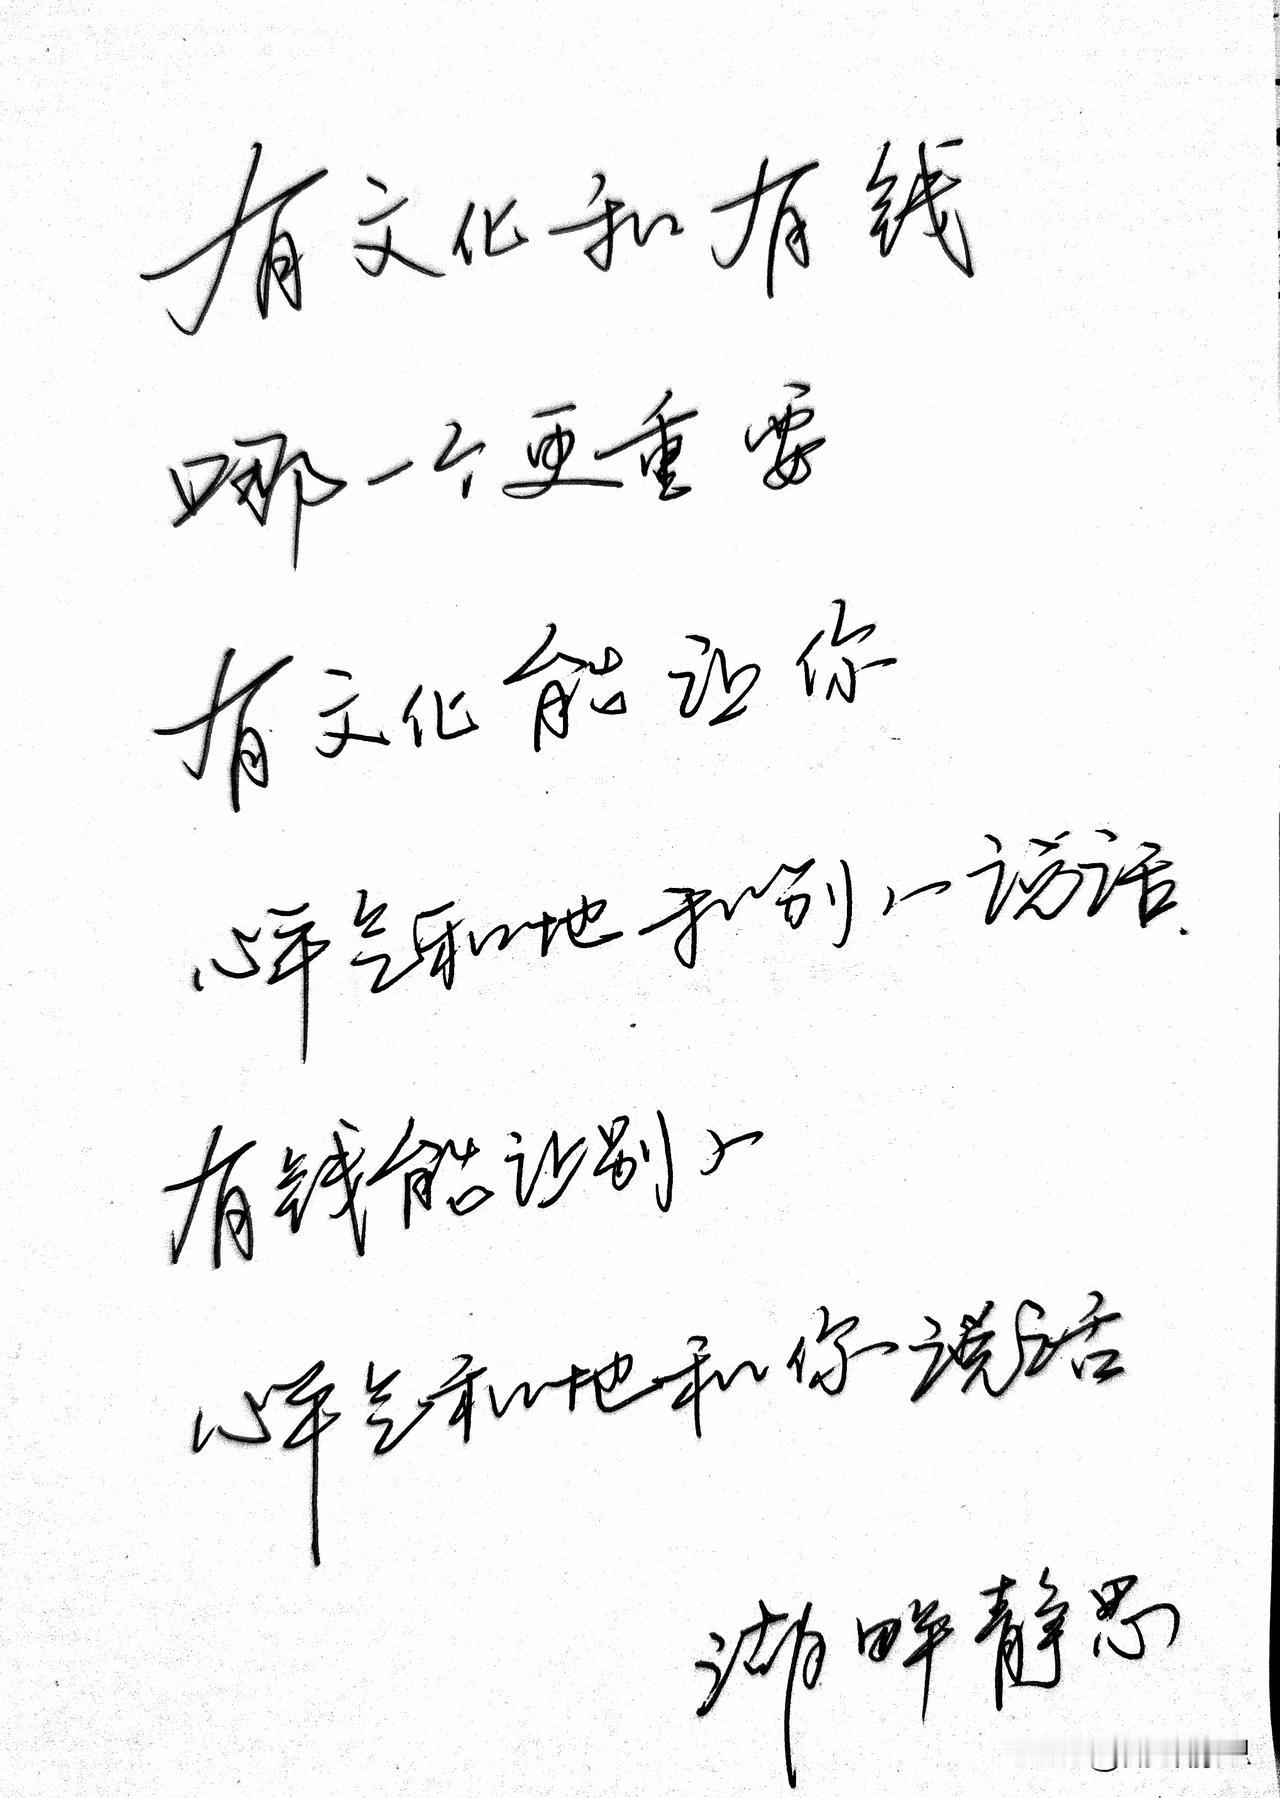 有文化和有钱
哪一个更重要
有文化能让你
心平气和地和别人说话.
有钱能让别人
心平气和地和你说话
湖畔静思